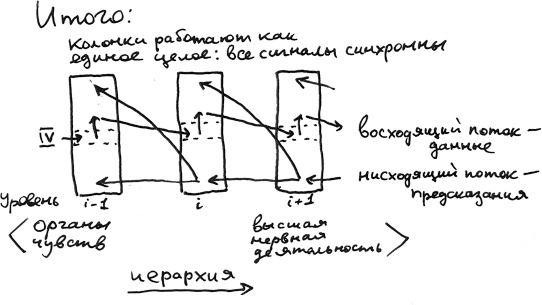 Итого:
колонки работают как
единое целое: все сигналы синхронны
IV
восходящий поток —
данные
нисходящий поток —
предсказания
уровень
i-1
i
i+1
органы
чувств
высшая
нервная
деятельность
иерархия